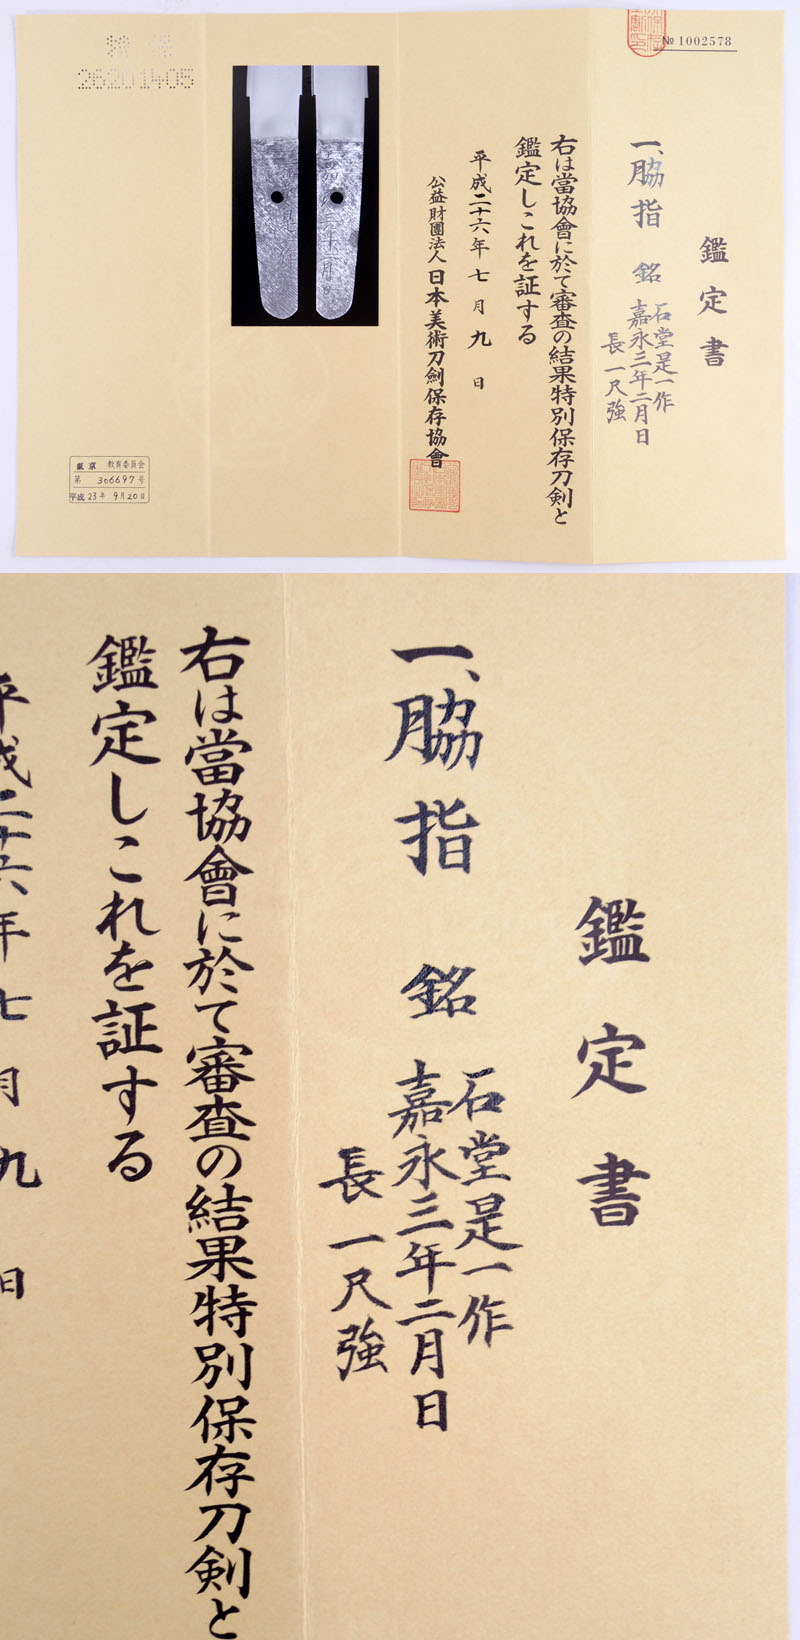 № 1002578
鑑定書
一、脇指 銘 石堂是一作
嘉永三年二月日
長 一尺強
右は當協會に於て審査の結果特別保存刀剣と
鑑定しこれを証する
平成二十六年七月九日
公益財團法人 日本美術刀劍保存協會
特保
26201405
東京 教育委員会
第 306697 号
平成 23年 9月20日
鑑定書
一、脇指 銘 石堂是一作
嘉永三年二月日
長 一尺強
右は當協會に於て審査の結果特別保存刀剣と
鑑定しこれを証する
平成二十六年七月九日